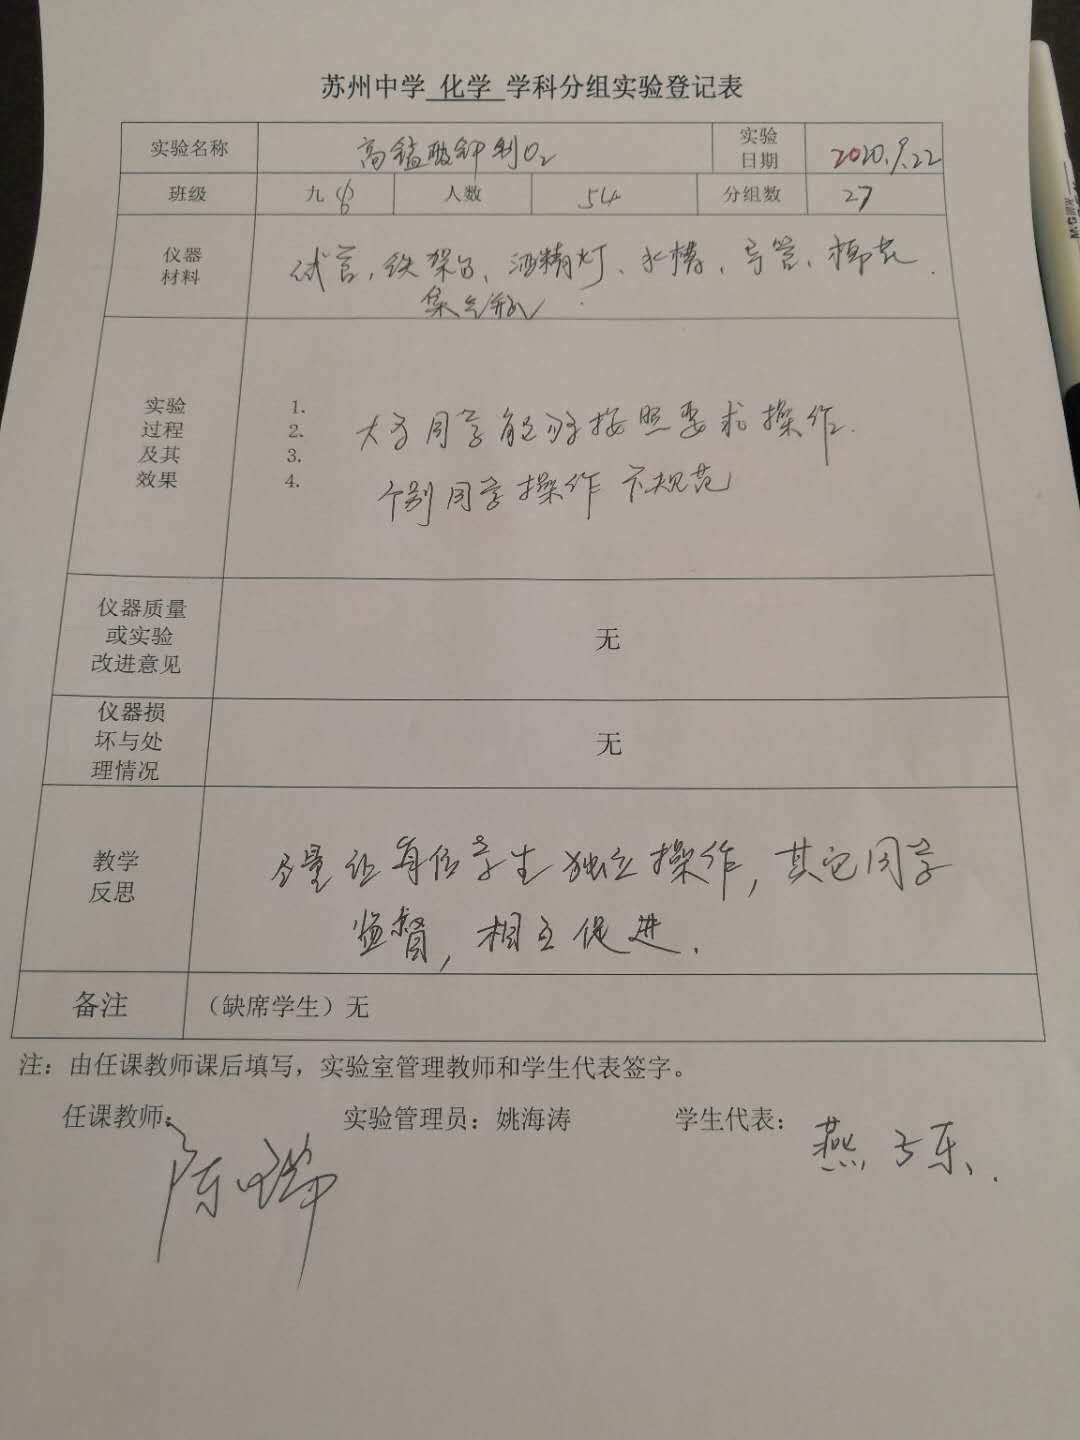 苏州中学 化学 学科分组实验登记表
实验名称 高锰酸钾制O₂ 实验日期 2020.9.22
班级 九(8) 人数 54 分组数 27
仪器材料 试管、铁架台、酒精灯、水槽、导管、棉花.
集气瓶
实验过程及其效果
1.
2. 大多同学能够按照要求操作.
3.
4. 个别同学操作不规范
仪器质量或实验改进意见 无
仪器损坏与处理情况 无
教学反思 尽量让每位学生独立操作,其它同学
监督,相互促进.
备注 (缺席学生)无
注:由任课教师课后填写,实验室管理教师和学生代表签字。
任课教师: 实验管理员:姚海涛 学生代表:
陈 燕